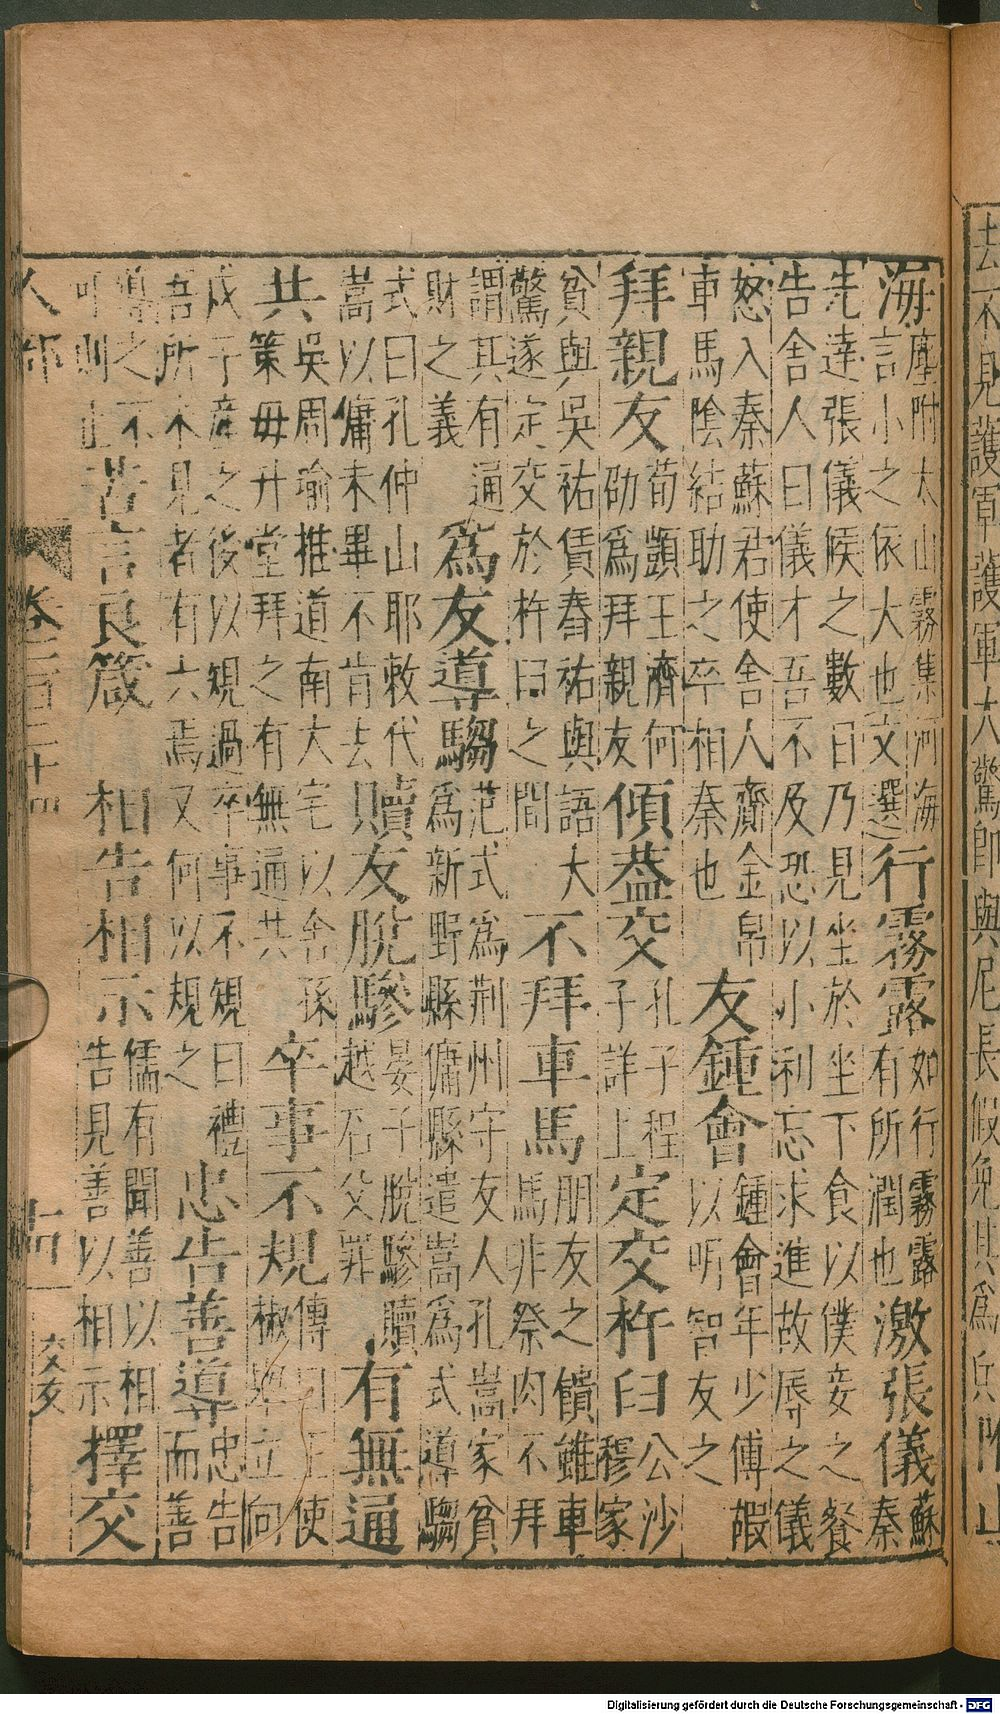 去不見護軍護軍大驚即與尼長假免其為兵
海塵附太山霧集河海言小之依大也文選行霧露如行霧露有所潤也激張儀蘇秦
先達張儀候之數日乃見坐於坐下食以僕妾之餐告舍人曰儀才吾不及恐以小利忘求進故辱之儀
怒入秦蘇君使舍人齎金帛車馬陰結助之卒相秦也友鍾會鍾會年少傅嘏以明智友之
拜親友荀顗王濟何劭為拜親友傾蓋交孔子程子詳上定交杵臼公沙穆家
貧與吳祐賃舂祐與語大驚遂定交於杵臼之間不拜車馬朋友之饋雖車馬非祭肉不拜
謂其有通財之義為友導騶范式為荊州守友人孔嵩家貧為新野縣傭縣遣嵩為式導騶
式曰孔仲山耶敕代嵩以傭未畢不肯去贖友脫驂晏子脫驂贖越石父罪有無通
共吳周瑜推道南大宅以舍孫策毋升堂拜之有無通共卒事不規傳曰王使椒舉立向
戍子產之後以規過卒事不規曰禮吾所不見者有六焉又何以規之忠告善導忠告而善
導之不可則止苦言良箴相告相示儒有聞善以相告見善以相示擇交
人部 卷 十四 交友
Digitalisierung gefördert durch die Deutsche Forschungsgemeinschaft - DFG